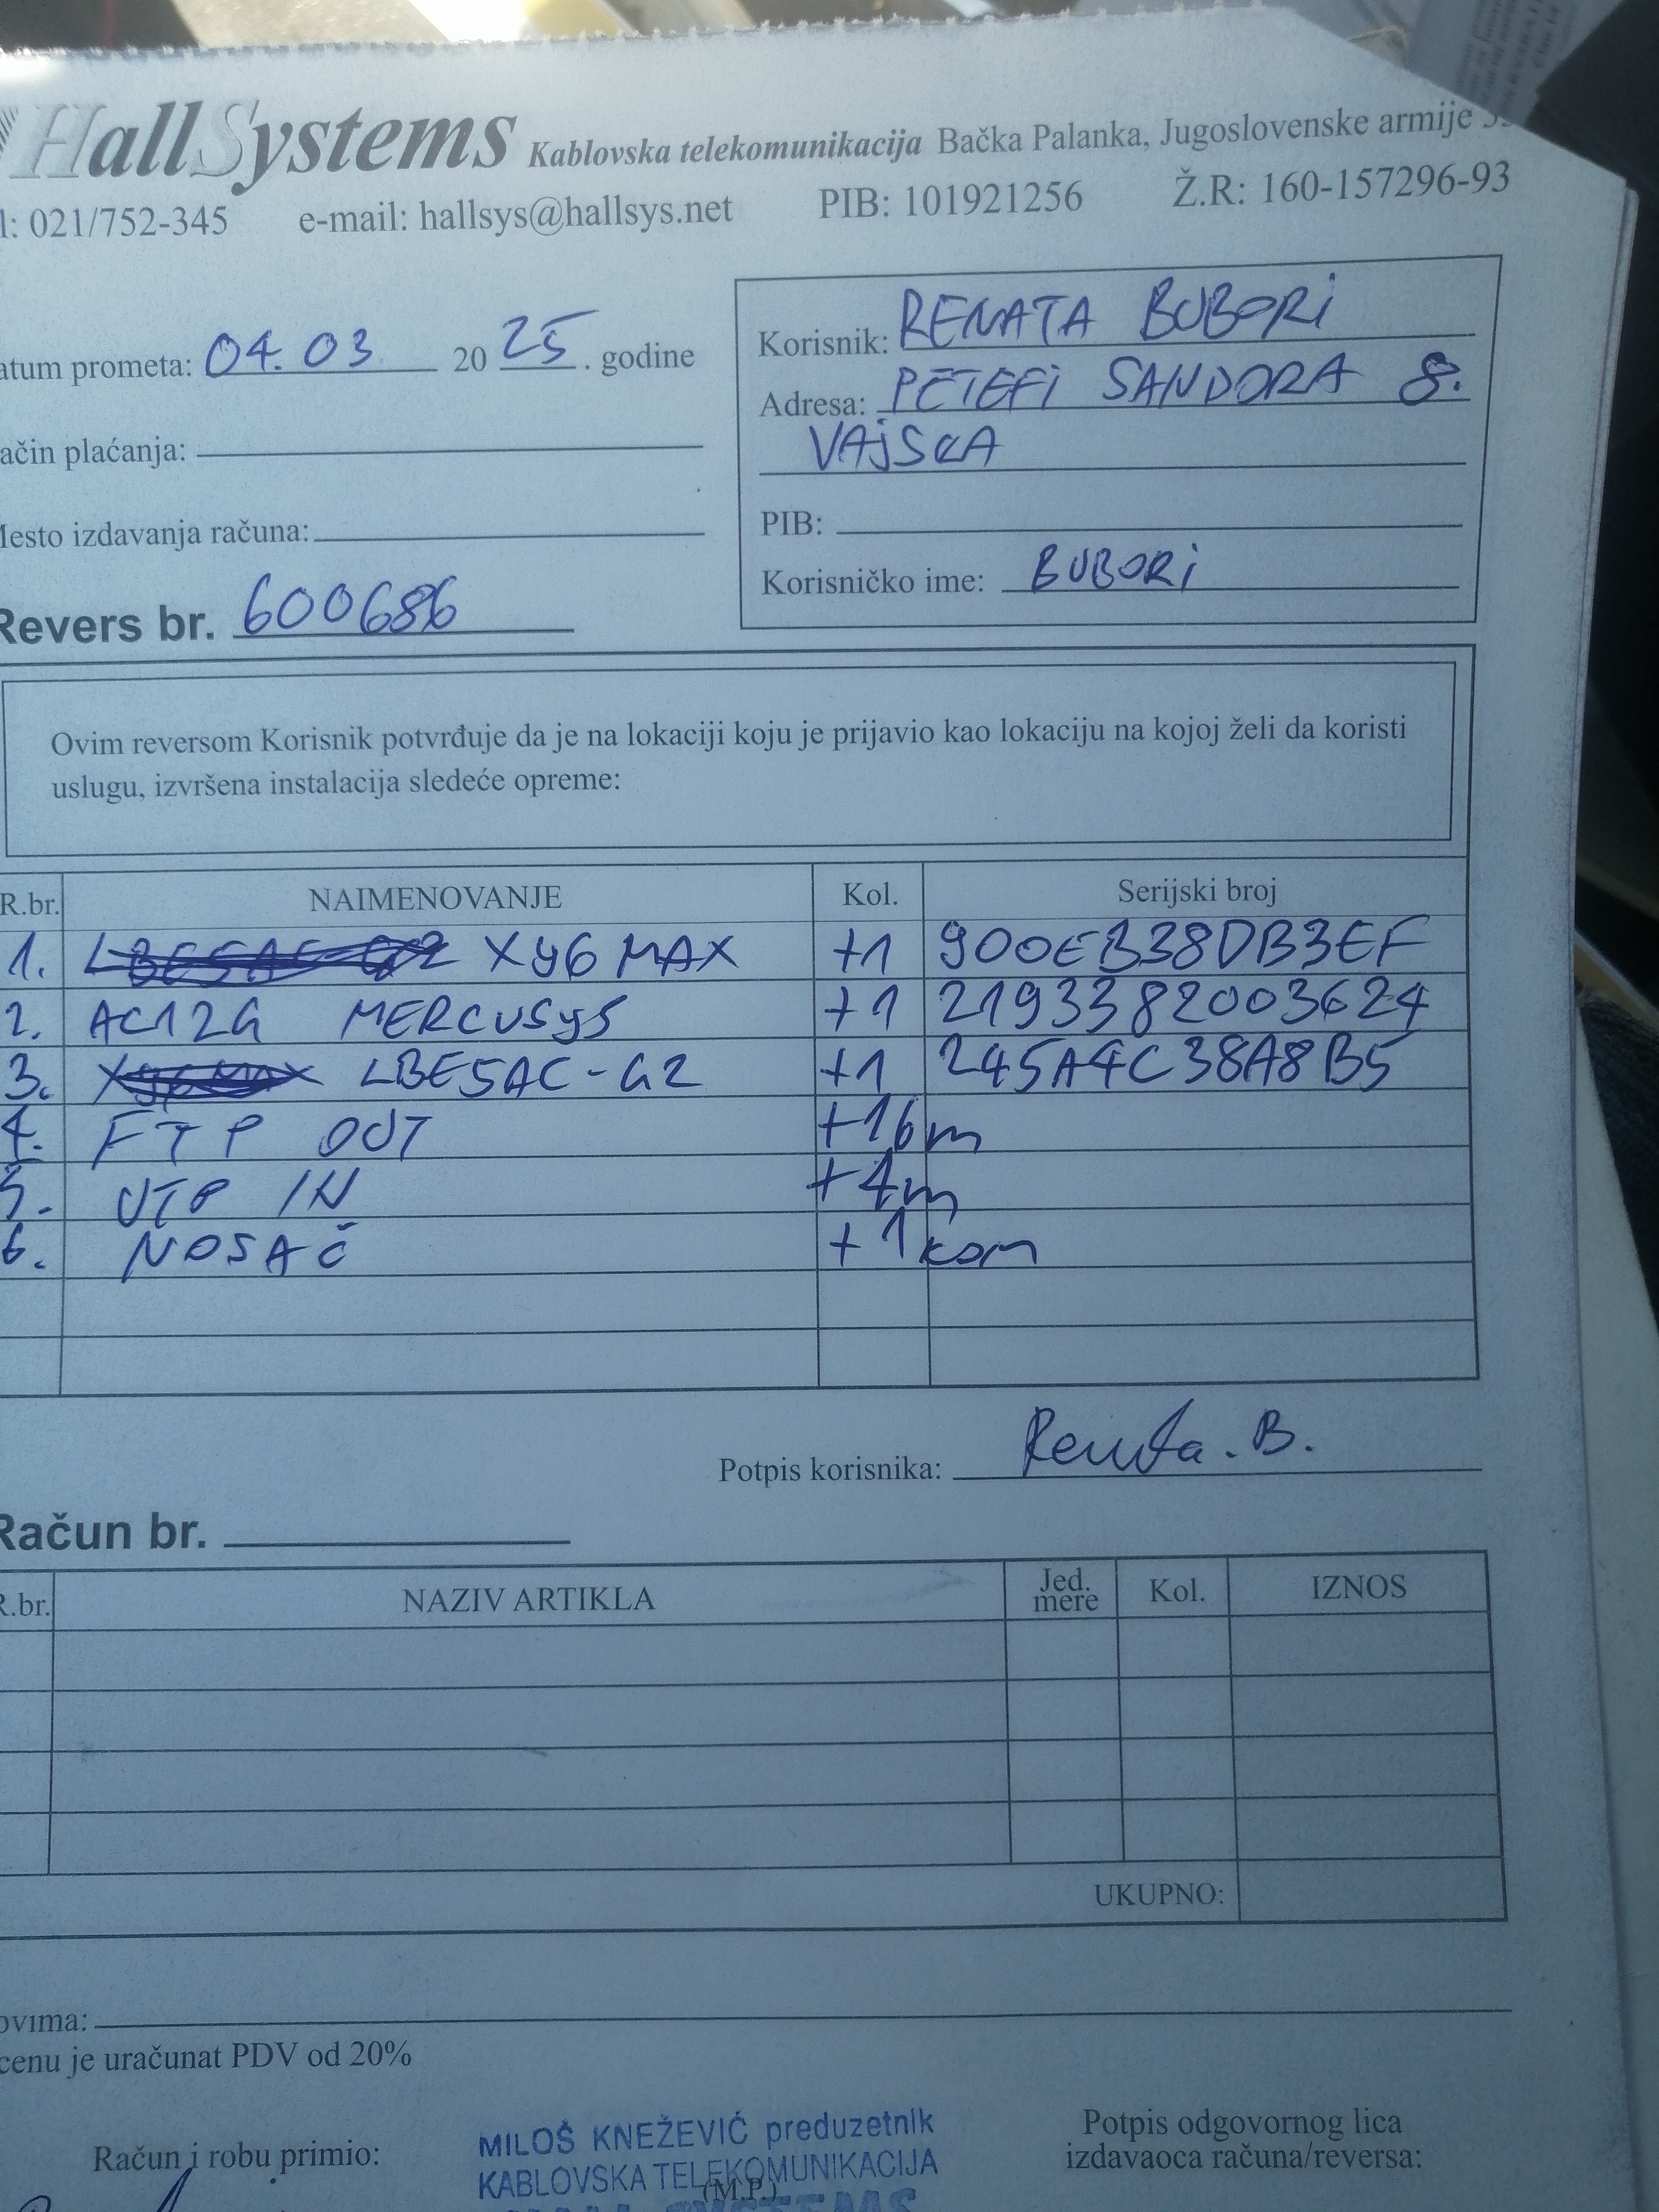 HallSystems Kablovska telekomunikacija Bačka Palanka, Jugoslovenske armije
l: 021/752-345 e-mail: hallsys@hallsys.net PIB: 101921256 Ž.R: 160-157296-93
atum prometa: 04.03 2025. godine
Korisnik: RENATA BUBORI
Adresa: PETEFI SANDORA 8.
VAJSKA
ačin plaćanja:
PIB:
esto izdavanja računa:
Korisničko ime: BUBORI
Revers br. 600686
Ovim reversom Korisnik potvrđuje da je na lokaciji koju je prijavio kao lokaciju na kojoj želi da koristi
uslugu, izvršena instalacija sledeće opreme:
R.br. NAIMENOVANJE Kol. Serijski broj
1. LBE5AC-G2 Xy6 MAX +1 900EB38DB3EF
2. AC12G MERCUSyS +1 2193382003624
3. Xy6 MAX LBE5AC-G2 +1 245A4C38A8B5
4. FTP OUT +16m
5. UTP IN +4m
6. NOSAČ +1kom
Potpis korisnika: Renata. B.
Račun br.
R.br. NAZIV ARTIKLA Jed. mere Kol. IZNOS
UKUPNO:
ovima:
cenu je uračunat PDV od 20%
Račun i robu primio:
MILOŠ KNEŽEVIĆ preduzetnik
KABLOVSKA TELEKOMUNIKACIJA
(M.P.)
Potpis odgovornog lica
izdavaoca računa/reversa: